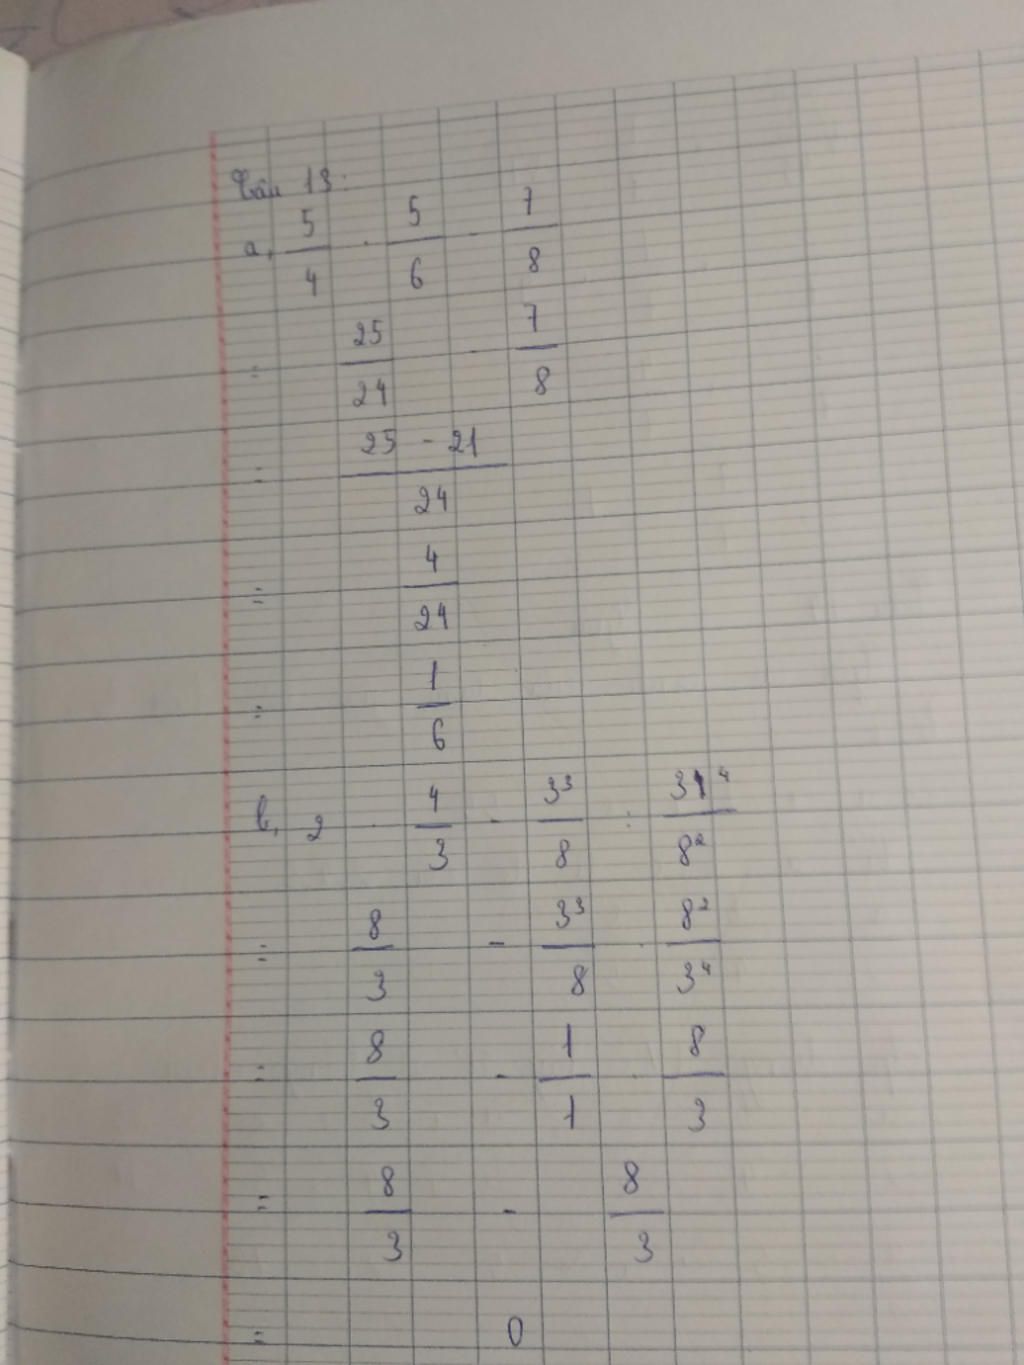 Câu 13:
a, 5/4 . 5/6 - 7/8
= 25/24 - 7/8
= (25 - 21)/24
= 4/24
= 1/6
b, 2 . 4/3 - 3³/8 : 3⁴/8²
= 8/3 - 3³/8 . 8²/3⁴
= 8/3 - 1/1 . 8/3
= 8/3 - 8/3
= 0